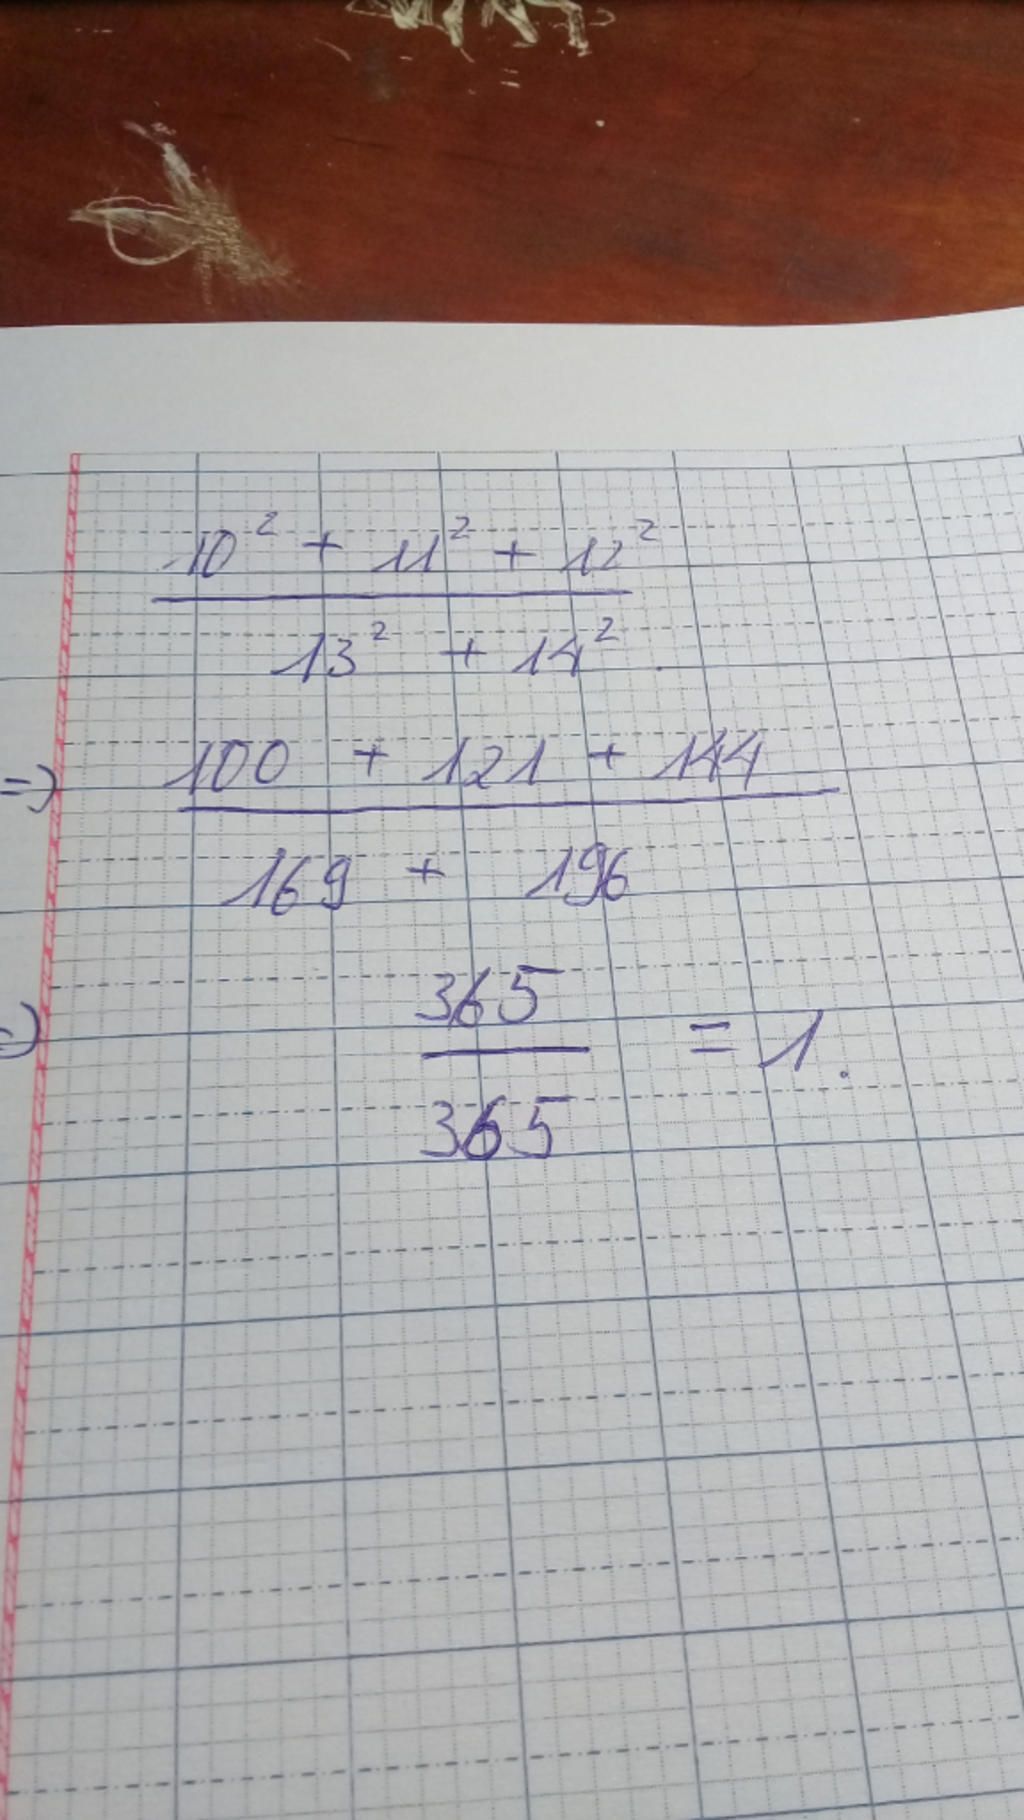 10² + 11² + 12²
13² + 14².
=) 100 + 121 + 144
169 + 196
=) 365
365
= 1.